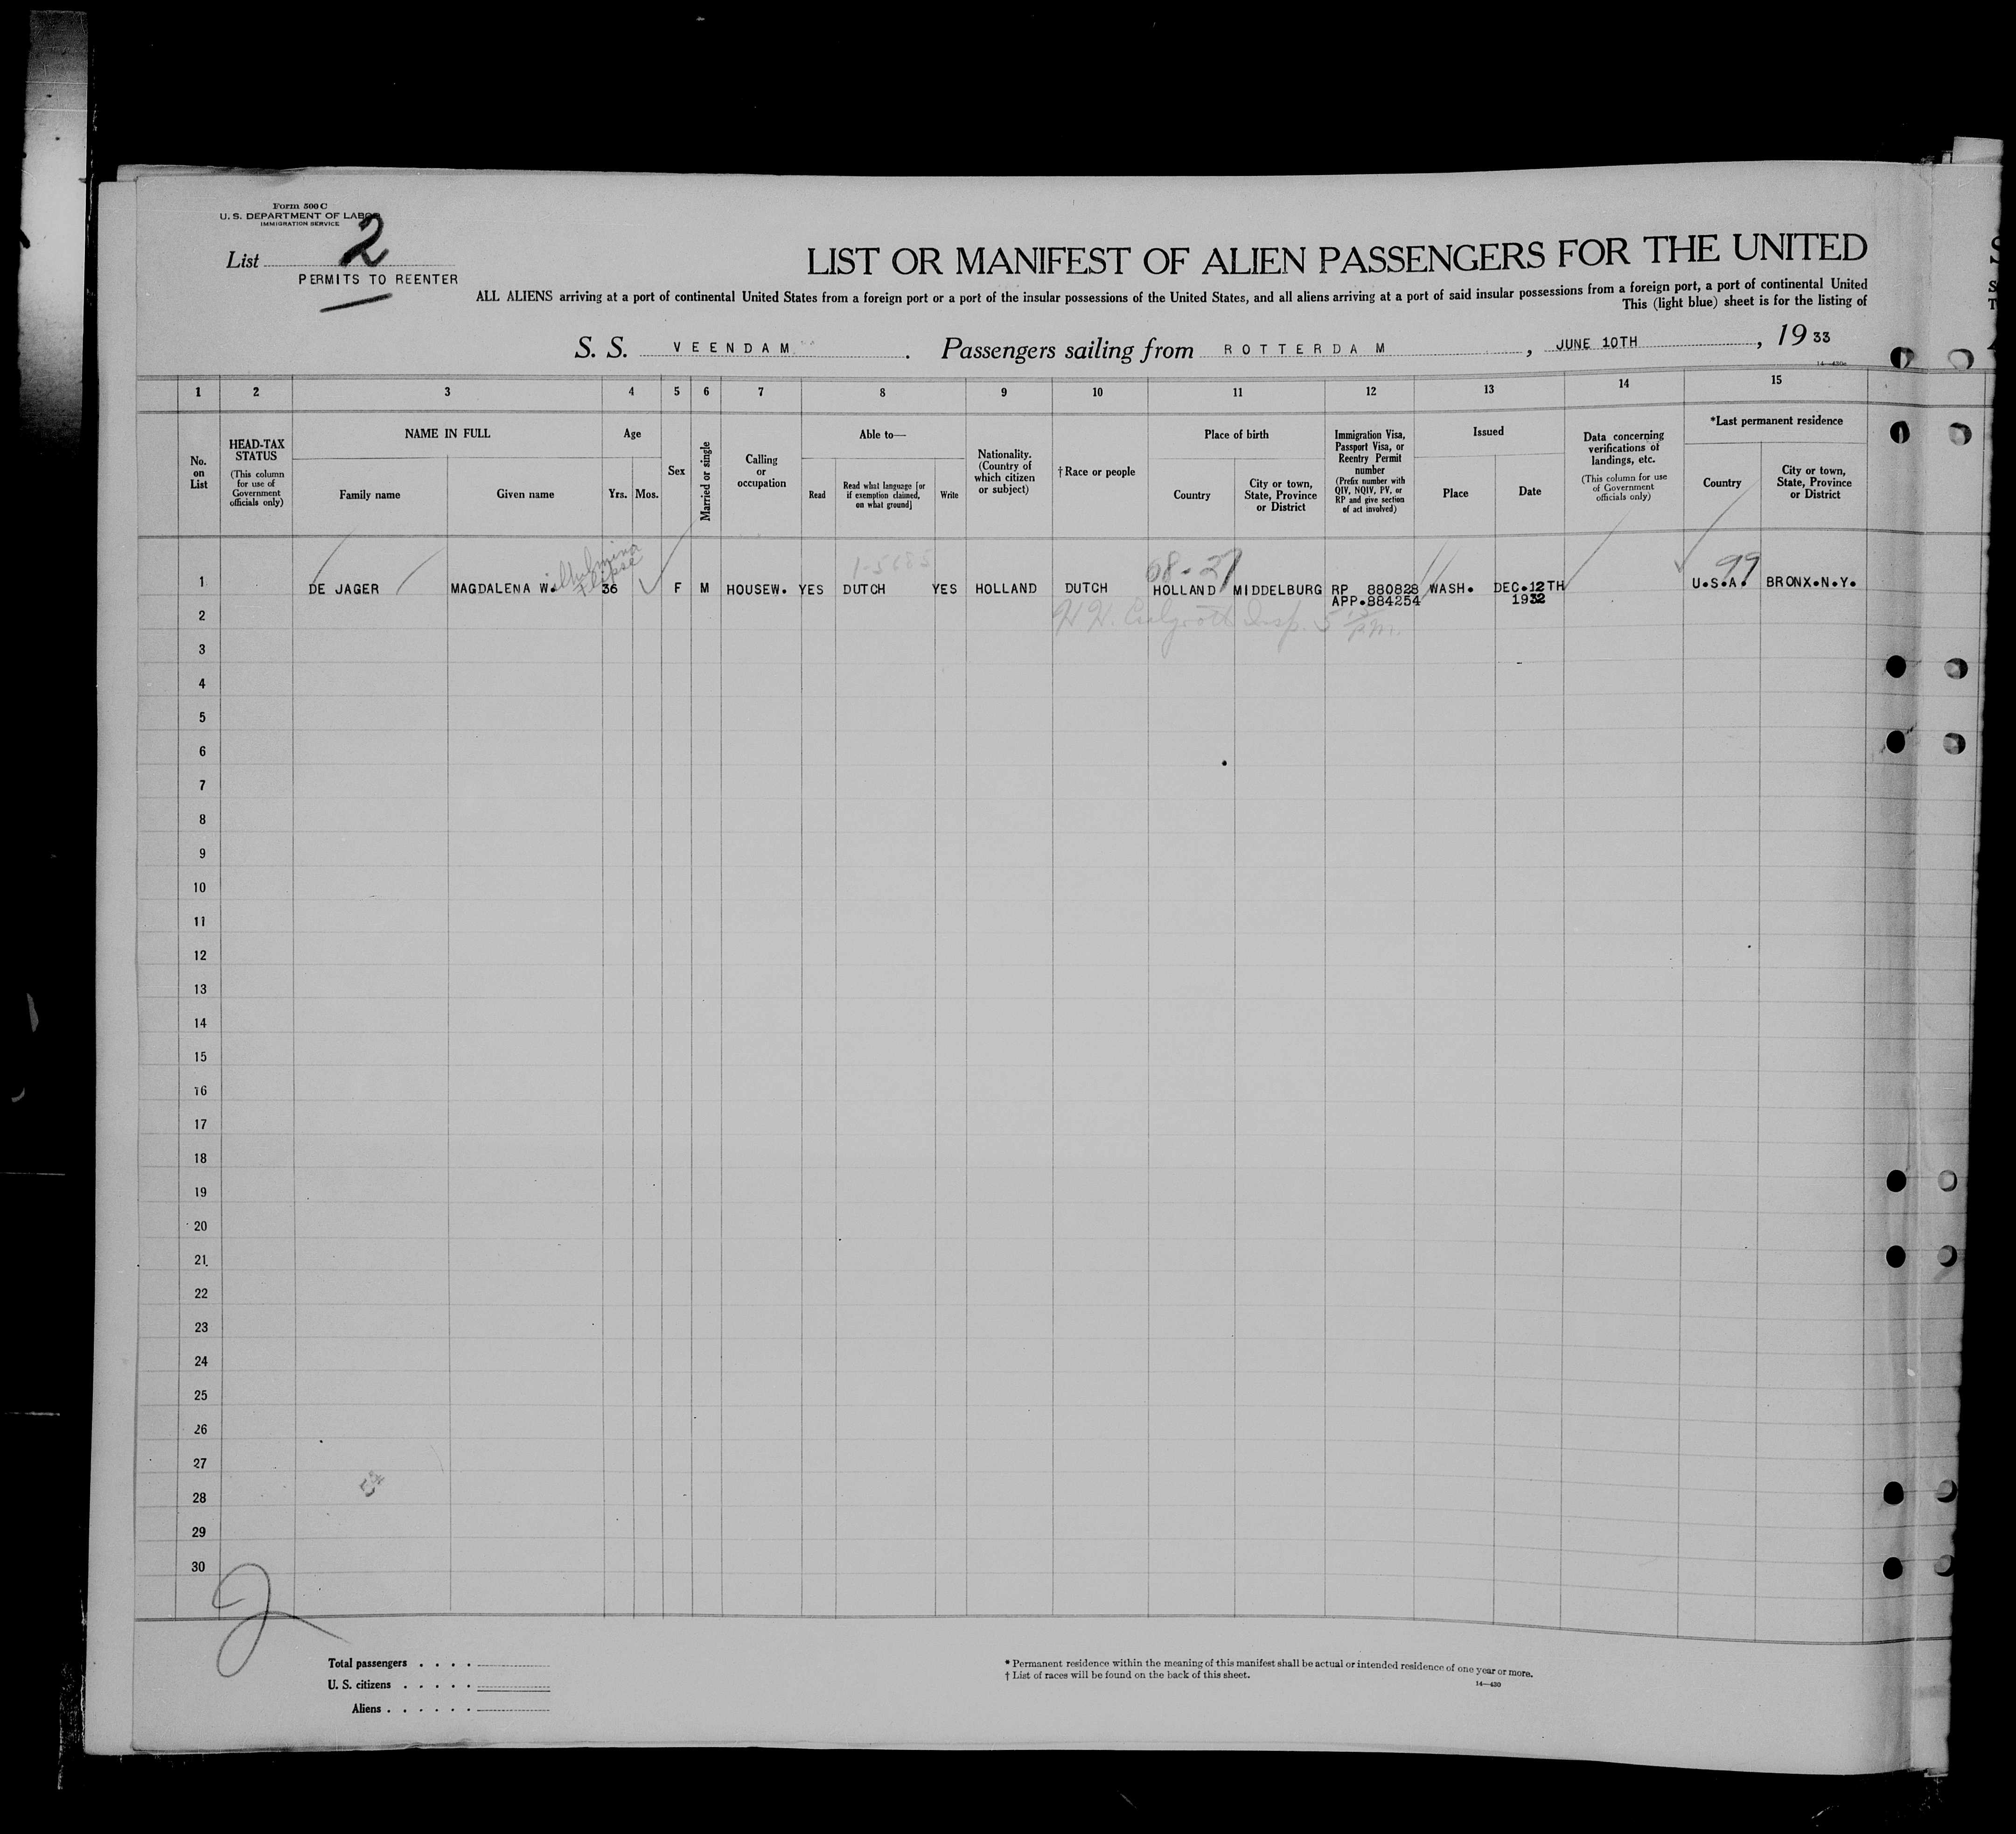 Form 500 C
U. S. DEPARTMENT OF LABOR
IMMIGRATION SERVICE
List 2
PERMITS TO REENTER
LIST OR MANIFEST OF ALIEN PASSENGERS FOR THE UNITED
ALL ALIENS arriving at a port of continental United States from a foreign port or a port of the insular possessions of the United States, and all aliens arriving at a port of said insular possessions from a foreign port, a port of continental United
This (light blue) sheet is for the listing of
S. S. VEENDAM. Passengers sailing from ROTTERDAM, JUNE 10TH, 19 33
1 2 3 4 5 6 7 8 9 10 11 12 13 14 15
No. on List
HEAD-TAX STATUS
(This column for use of Government officials only)
NAME IN FULL
Family name
Given name
Age
Yrs. Mos.
Sex
Married or single
Calling or occupation
Able to—
Read
Read what language [or if exemption claimed, on what ground]
Write
Nationality. (Country of which citizen or subject)
† Race or people
Place of birth
Country
City or town, State, Province or District
Immigration Visa, Passport Visa, or Reentry Permit number
(Prefix number with QIV, NQIV, PV, or RP and give section of act involved)
Issued
Place
Date
Data concerning verifications of landings, etc.
(This column for use of Government officials only)
*Last permanent residence
Country
City or town, State, Province or District
1-5685
99
1 DE JAGER MAGDALENA W. 36 F M HOUSEW. YES DUTCH YES HOLLAND DUTCH HOLLAND MIDDELBURG RP 880828 WASH. DEC.12TH U.S.A. BRONX.N.Y.
APP.884254 1932
2
3
4
5
6
7
8
9
10
11
12
13
14
15
16
17
18
19
20
21
22
23
24
25
26
27
28
29
30
2
Total passengers . . . .
U. S. citizens . . . . .
Aliens . . . . . .
* Permanent residence within the meaning of this manifest shall be actual or intended residence of one year or more.
† List of races will be found on the back of this sheet.
14—430